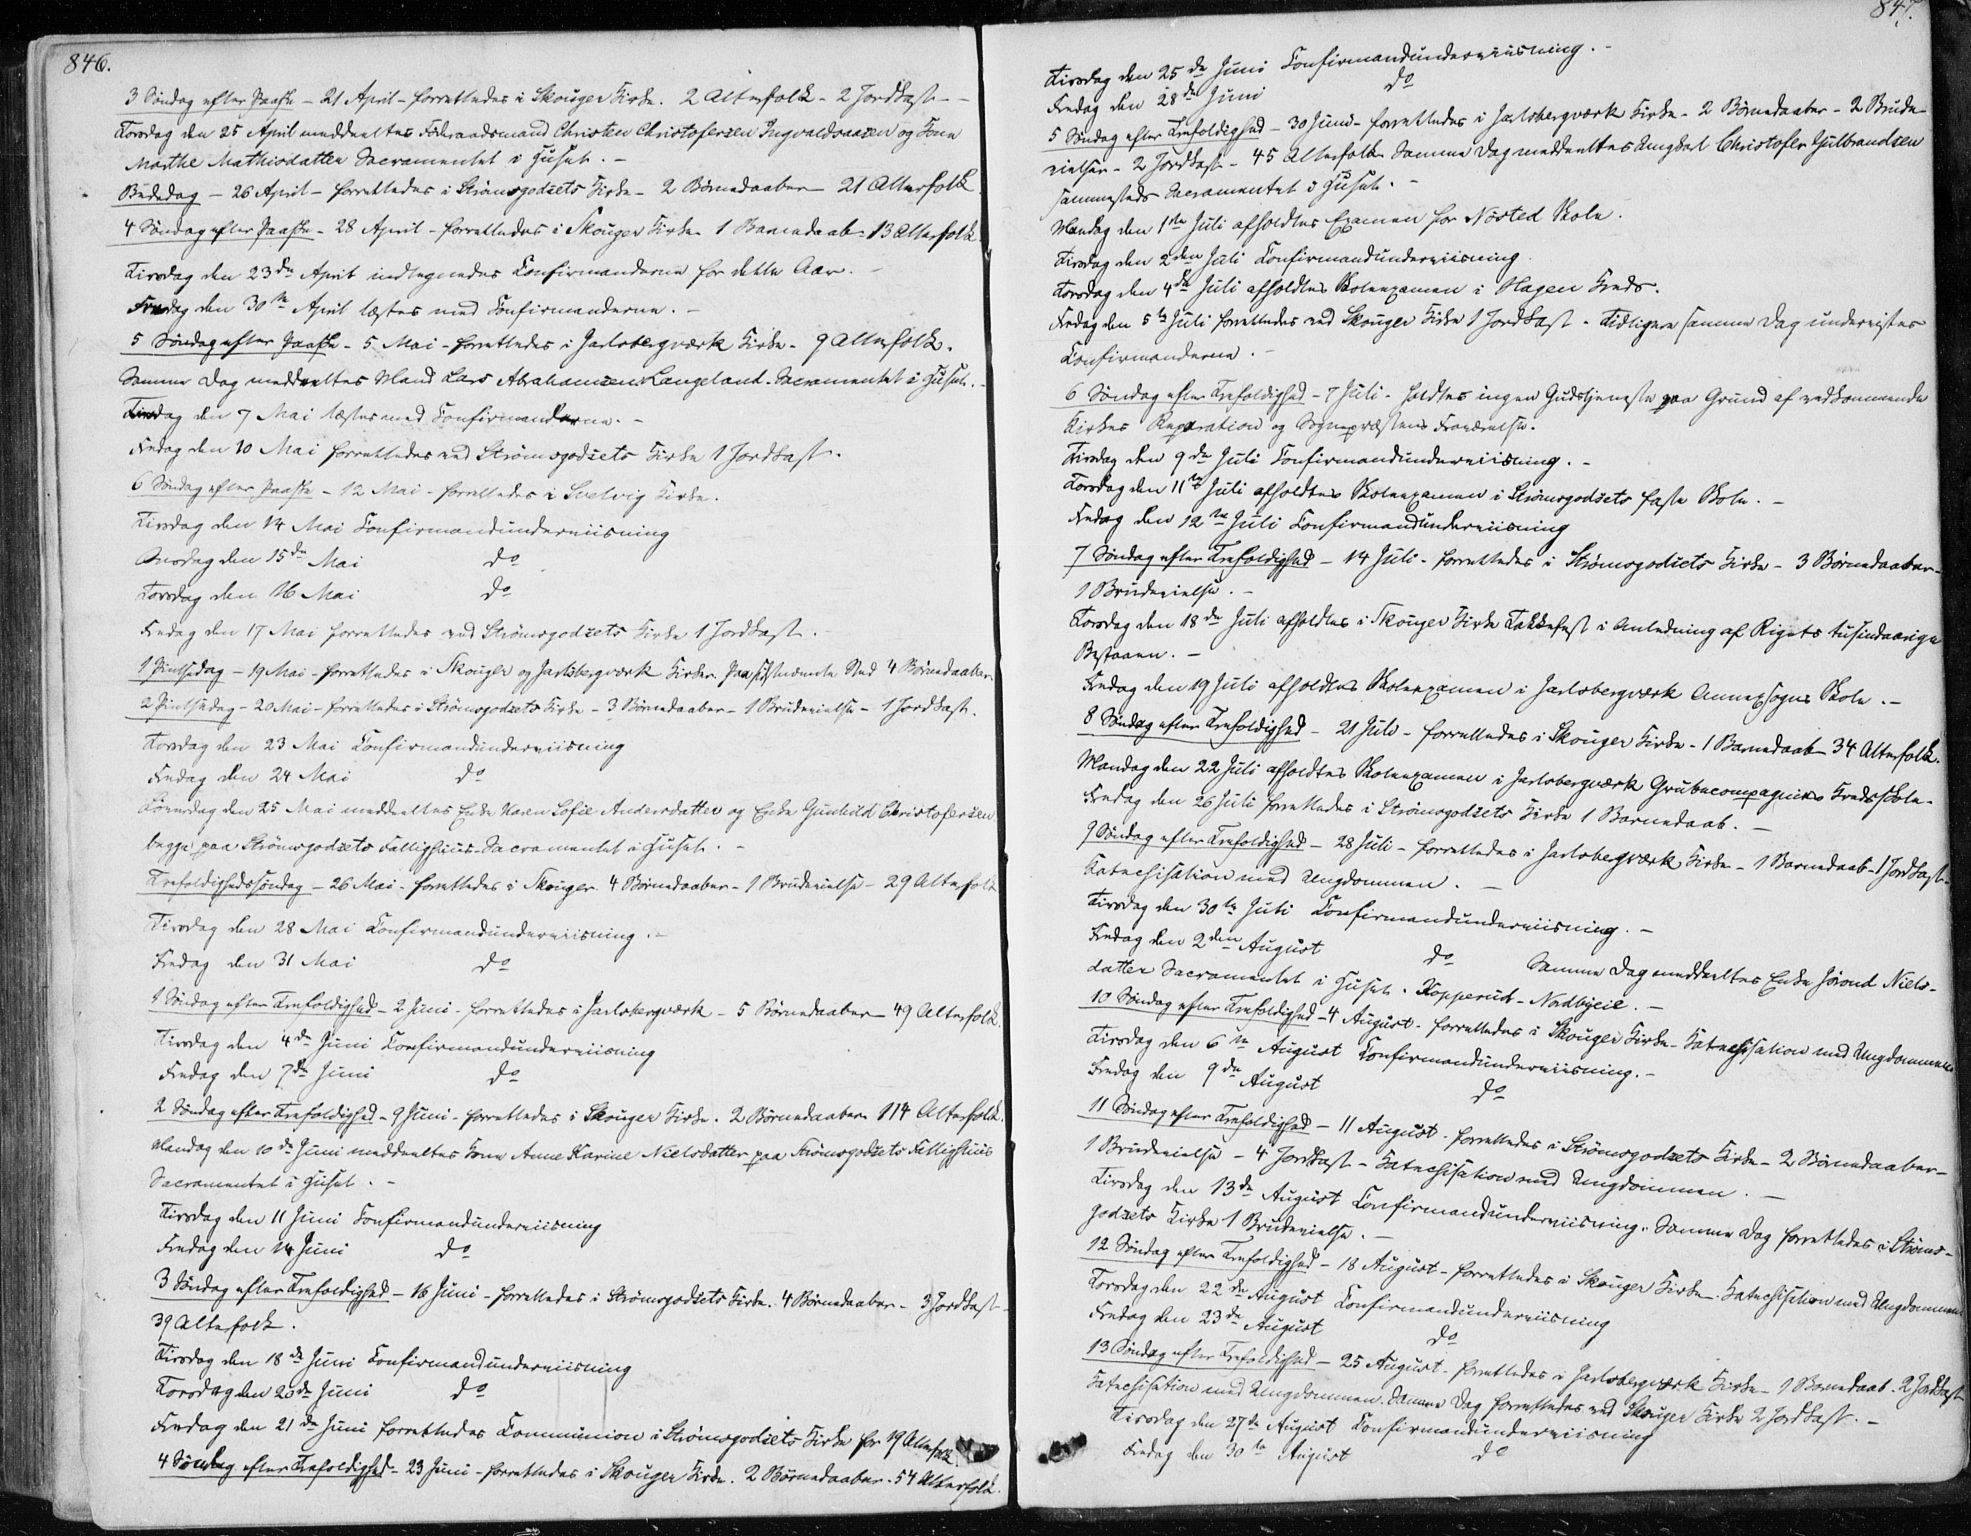 846.
3 Søndag efter Paaske – 21 April – forrettedes i Skouger Kirke. 2 Alterfolk – 2 Jordkast – –
Torsdag den 25 April meddeeltes Føderaadsmand Christen Christofersen Ingvaldsaasen og Kone
Marthe Mathisdatter Sacramentet i Huset. –
Bededag – 26 April – forrettedes i Strømsgodsets Kirke – 2 Børnedaaber – 21 Alterfolk
4 Søndag efter Paaske – 28 April – forrettedes i Skouger Kirke – 1 Barnedaab – 13 Alterfolk
Tirsdag den 23de April indtegnedes Confirmanderne for dette Aar. –
den 30te April læstes med Confirmanderne. –
5 Søndag efter Paaske – 5 Mai – forrettedes i Jarlsbergværk Kirke – 9 Alterfolk.
Samme Dag meddeeltes Mand Lars Abrahamsen Langeland Sacramentet i Huset. –
Tirsdag den 7 Mai læstes med Confirmanderne. –
Fredag den 10 Mai forrettedes ved Strømsgodsets Kirke 1 Jordkast.
6 Søndag efter Paaske – 12 Mai – forrettedes i Svelvig Kirke.
Tirsdag den 14 Mai Confirmandunderviisning
Onsdag den 15de Mai do
Torsdag den 16 Mai do
Fredag den 17 Mai forrettedes ved Strømsgodsets Kirke 1 Jordkast.
1 Pintsedag – 19 Mai – forrettedes i Skouger og Jarlsbergværk Kirker. Paa sidstnævnte Sted 4 Børnedaaber
2 Pintsedag – 20 Mai – forrettedes i Strømsgodsets Kirke – 3 Børnedaaber – 1 Brudevielse – 1 Jordkast.
Torsdag den 23 Mai Confirmandunderviisning
Fredag den 24 Mai do
Løverdag den 25 Mai meddeeltes Enke Karen Sofie Andersdatter og Enke Gunhild Christofersen
begge paa Strømsgodsets Fattighuus Sacramentet i Huset. –
Trefoldighedssøndag – 26 Mai – forrettedes i Skouger 4 Børnedaaber – 1 Brudevielse – 29 Alterfolk
Tirsdag den 28 Mai Confirmandunderviisning. –
Fredag den 31 Mai do
1 Søndag efter Trefoldighed – 2 Juni – forrettedes i Jarlsbergværk – 5 Børnedaaber – 49 Alterfolk.
Tirsdag den 4de Juni Confirmandunderviisning
Fredag den 7de Juni do
2 Søndag efter Trefoldighed – 9 Juni – forrettedes i Skouger Kirke. 2 Børnedaaber 114 Alterfolk.
Mandag den 10de Juni meddeeltes Kone Anne Karine Nielsdatter paa Strømsgodsets Fattighuus
Sacramentet i Huset. –
Tirsdag den 11 Juni Confirmandunderviisning
Fredag den 14 Juni do
3 Søndag efter Trefoldighed – 16 Juni – forrettedes i Strømsgodsets Kirke. 4 Børnedaaber – 3 Jordkast –
39 Alterfolk.
Tirsdag den 18de Juni Confirmandunderviisning
Torsdag den 20de Juni do
Fredag den 21de Juni forrettedes Communion i Strømsgodsets Kirke for 19 Alterfolk
4 Søndag efter Trefoldighed – 23 Juni – forrettedes i Skouger Kirke. 2 Børnedaaber – 54 Alterfolk.
847.
Tirsdag den 25de Juni Confirmandunderviisning. –
Fredag den 28de Juni do
5 Søndag efter Trefoldighed – 30 Juni – forrettedes i Jarlsbergværk Kirke – 2 Børnedaaber – 2 Brude-
vielser – 2 Jordkast – 45 Alterfolk Samme Dag meddeeltes Ungkarl Christofer Gulbrandsen
sammesteds Sacramentet i Huset. –
Mandag den 1ste Juli afholdtes Examen for Nøsted Skole.
Tirsdag den 2den Juli Confirmandunderviisning.
Torsdag den 4de Juli afholdtes Skoleexamen i Hagen Kreds.
Fredag den 5te Juli forrettedes ved Skouger Kirke 1 Jordkast – Tidligere samme Dag undervistes
Confirmanderne. –
6 Søndag efter Trefoldighed – 7 Juli – holdtes ingen Gudstjeneste paa Grund af vedkommende
Kirkes Reparation og Sognepræstens Fraværelse.
Tirsdag den 9de Juli Confirmandunderviisning. –
Torsdag den 11te Juli afholdtes Skoleexamen i Strømsgodsets faste Skole. –
Fredag den 12te Juli Confirmandunderviisning
7 Søndag efter Trefoldighed – 14 Juli – forrettedes i Strømsgodsets Kirke – 3 Børnedaaber –
1 Brudevielse. –
Torsdag den 18de Juli afholdtes i Skouger Kirke Takkefest i Anledning af Rigets tusindaarige
Bestaaen. –
Fredag den 19 Juli afholdtes Skoleexamen i Jarlsbergværk Annexsogns Skole. –
8 Søndag efter Trefoldighed – 21 Juli – forrettedes i Skouger Kirke – 1 Barnedaab 34 Alterfolk.
Mandag den 22 Juli afholdtes Skoleexamen i Jarlsbergværk Grubecompagnies Kredsskole –
Fredag den 26 Juli forrettedes i Strømsgodsets Kirke 1 Barnedaab. –
9 Søndag efter Trefoldighed – 28 Juli – forrettedes i Jarlsbergværk Kirke – 1 Barnedaab – 1 Jordkast –
Katechisation med Ungdommen. –
Tirsdag den 30te Juli Confirmandunderviisning. –
Fredag den 2den August do Samme Dag meddeeltes Enke Jørond Niels-
datter Sacramentet i Huset. Kopperud – Nordbyeie. –
10 Søndag efter Trefoldighed – 4 August – forrettedes i Skouger Kirke – Katechisation med Ungdommen
Tirsdag den 6te August Confirmandunderviisning. –
Fredag den 9de August do
11 Søndag efter Trefoldighed – 11 August – forrettedes i Strømsgodsets Kirke – 2 Børnedaaber –
1 Brudevielse – 4 Jordkast – Katechisation med Ungdommen. –
Tirsdag den 13de August Confirmandunderviisning. Samme Dag forrettedes i Strøms-
godsets Kirke 1 Brudevielse. –
12 Søndag efter Trefoldighed – 18 August – forrettedes i Skouger Kirke – Katechisation med Ungdommen
Torsdag den 22de August Confirmandunderviisning
Fredag den 23de August do
13 Søndag efter Trefoldighed – 25 August – forrettedes i Jarlsbergværk Kirke – 1 Barnedaab – 2 Jordkast
Katechisation med Ungdommen. Samme Dag forrettedes ved Skouger Kirke 2 Jordkast. –
Tirsdag den 27de August Confirmandunderviisning
Fredag den 30te August do